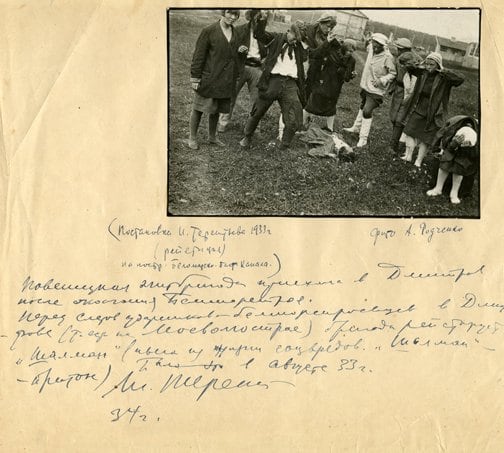 (Постановка И. Терентьева 1933 г.
(рейстикци)
на постр. Беломорско-балт. Канала.)
Фото А. Родченко
Повенецкая агитбригада приехала в Дмитров
после окончания Белморстроя.
Перед слетом ударников-белморстроевцев в Дми-
трове (т.е. на Москаволгострое) бригада рейстирует
„Шалман" (пьеса из жизни соцвредов. „Шалман" -
- притон) Было это в августе 33 г.
Ив. Терен
34 г.